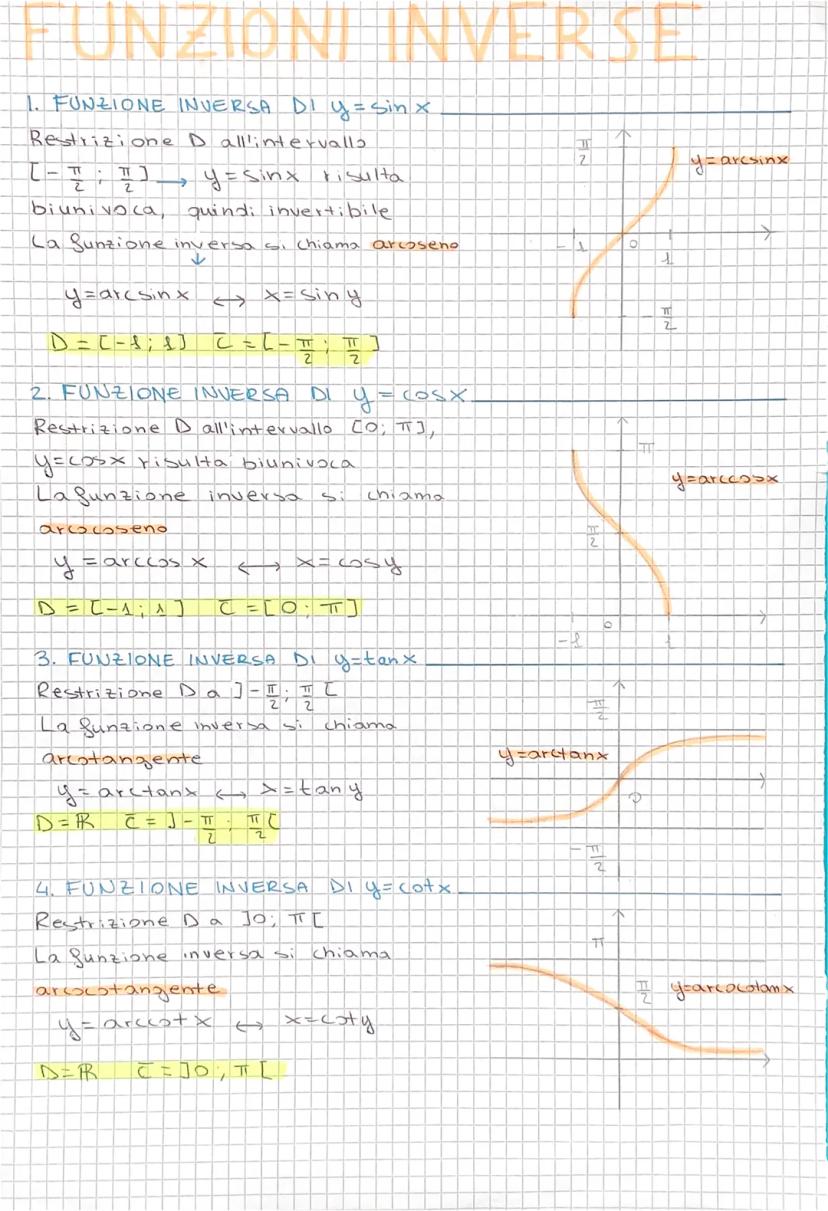 FUNZIONI INVERSE
1. FUNZIONE INVERSA DI y=sinx
Restrizione D all'intervallo
[-π/2; π/2] → y=sinx risulta
biunivoca, quindi invertibile
La funzione inversa si chiama arcoseno
↓
y=arcsinx ↔ x=siny
D=[-1;1] C=[-π/2; π/2]
π/2
y=arcsinx
-1
0
1
-π/2
2. FUNZIONE INVERSA DI y=cosx
Restrizione D all'intervallo [0; π],
y=cosx risulta biunivoca
La funzione inversa si chiama
arcocoseno
y=arccosx ↔ x=cosy
D=[-1;1] C=[0; π]
π
y=arccosx
π/2
0
-1
1
3. FUNZIONE INVERSA DI y=tanx
Restrizione D a ]-π/2; π/2[
La funzione inversa si chiama
arcotangente
y=arctanx ↔ x=tany
D=ℝ C=]-π/2; π/2[
π/2
y=arctanx
0
-π/2
4. FUNZIONE INVERSA DI y=cotx
Restrizione D a ]0; π[
La funzione inversa si chiama
arcocotangente
y=arccotx ↔ x=coty
D=ℝ C=]0; π[
π
π/2
y=arcocotanx